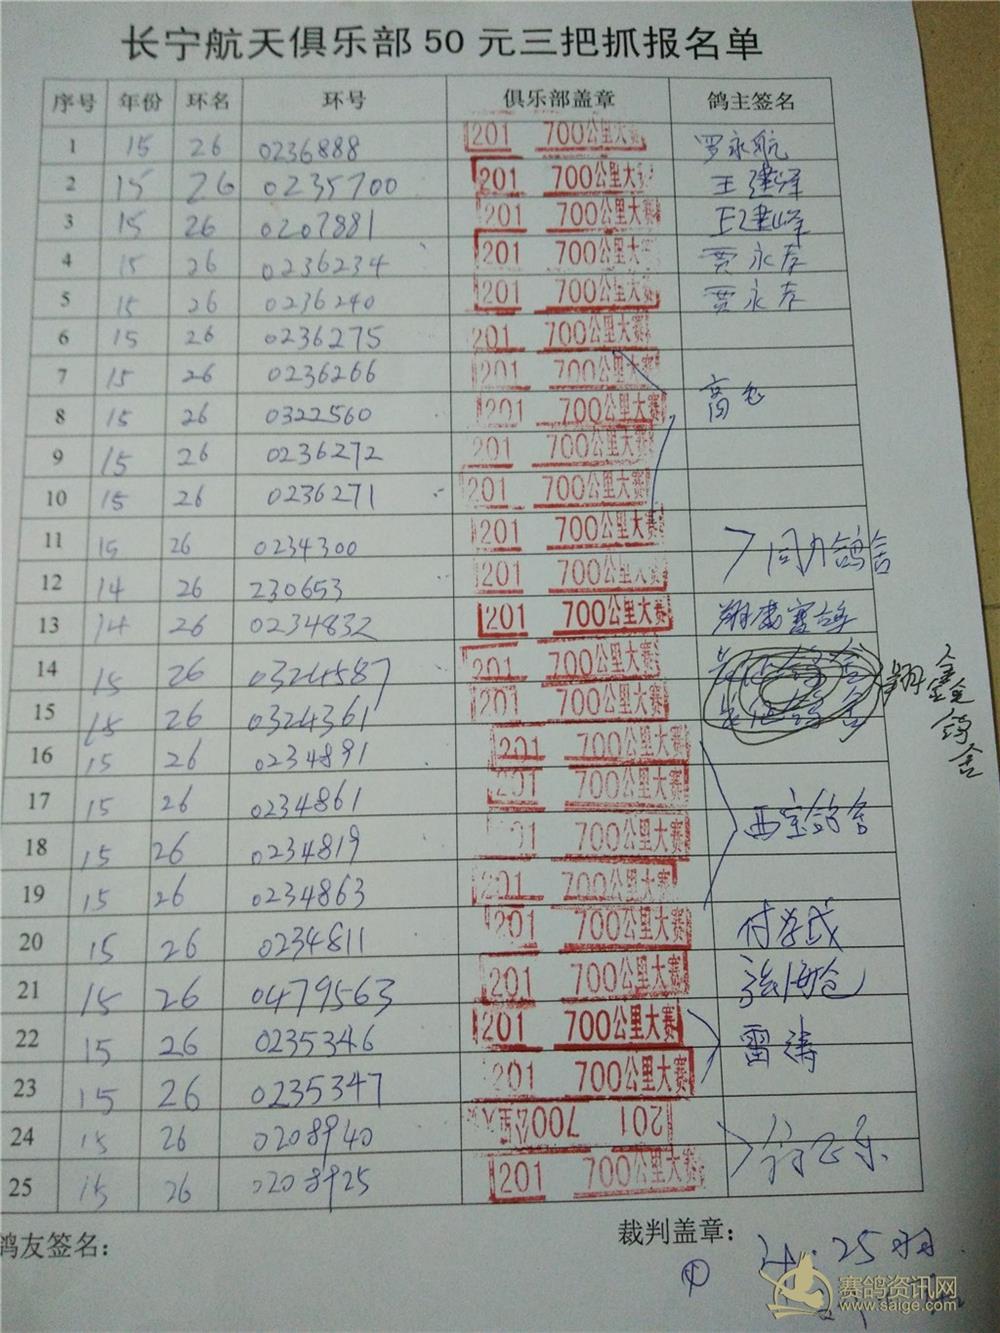 长宁航天俱乐部50元三把抓报名单
序号 年份 环名 环号 俱乐部盖章 鸽主签名
1 15 26 0236888 201 700公里大赛 罗永航
2 15 26 0235700 201 700公里大赛 王建峰
3 15 26 0207881 201 700公里大赛 王建峰
4 15 26 0236234 201 700公里大 贾永孝
5 15 26 0236240 201 700公里大赛 贾永孝
6 15 26 0236275 201 700公里大赛
7 15 26 0236266 201 700公里大赛
8 15 26 0322560 201 700公里大赛 高
9 15 26 0236272 201 700公里大赛
10 15 26 0236271 201 700公里大赛
11 15 26 0234300 201 700公里大赛 同力鸽舍
12 14 26 230653 201 700公里大赛
13 14 26 0234832 201 700公里大赛
14 15 26 0324587 201 700公里大赛 翔鑫鸽舍
15 15 26 0324361 201 700公里大赛
16 15 26 0234891 201 700公里大赛
17 15 26 0234861 201 700公里大赛 西宝鸽舍
18 15 26 0234819 01 700公里大赛
19 15 26 0234863 201 700公里大赛
20 15 26 0234811 201 700公里大赛
21 15 26 0479563 201 700公里大赛
22 15 26 0235346 201 700公里大赛 雷涛
23 15 26 0235347 201 700公里大赛
24 15 26 0208940 201 700公里大
25 15 26 0208925 201 700公里大赛
鸽友签名：
裁判盖章：
计：25羽
赛鸽资讯网
www.saige.com